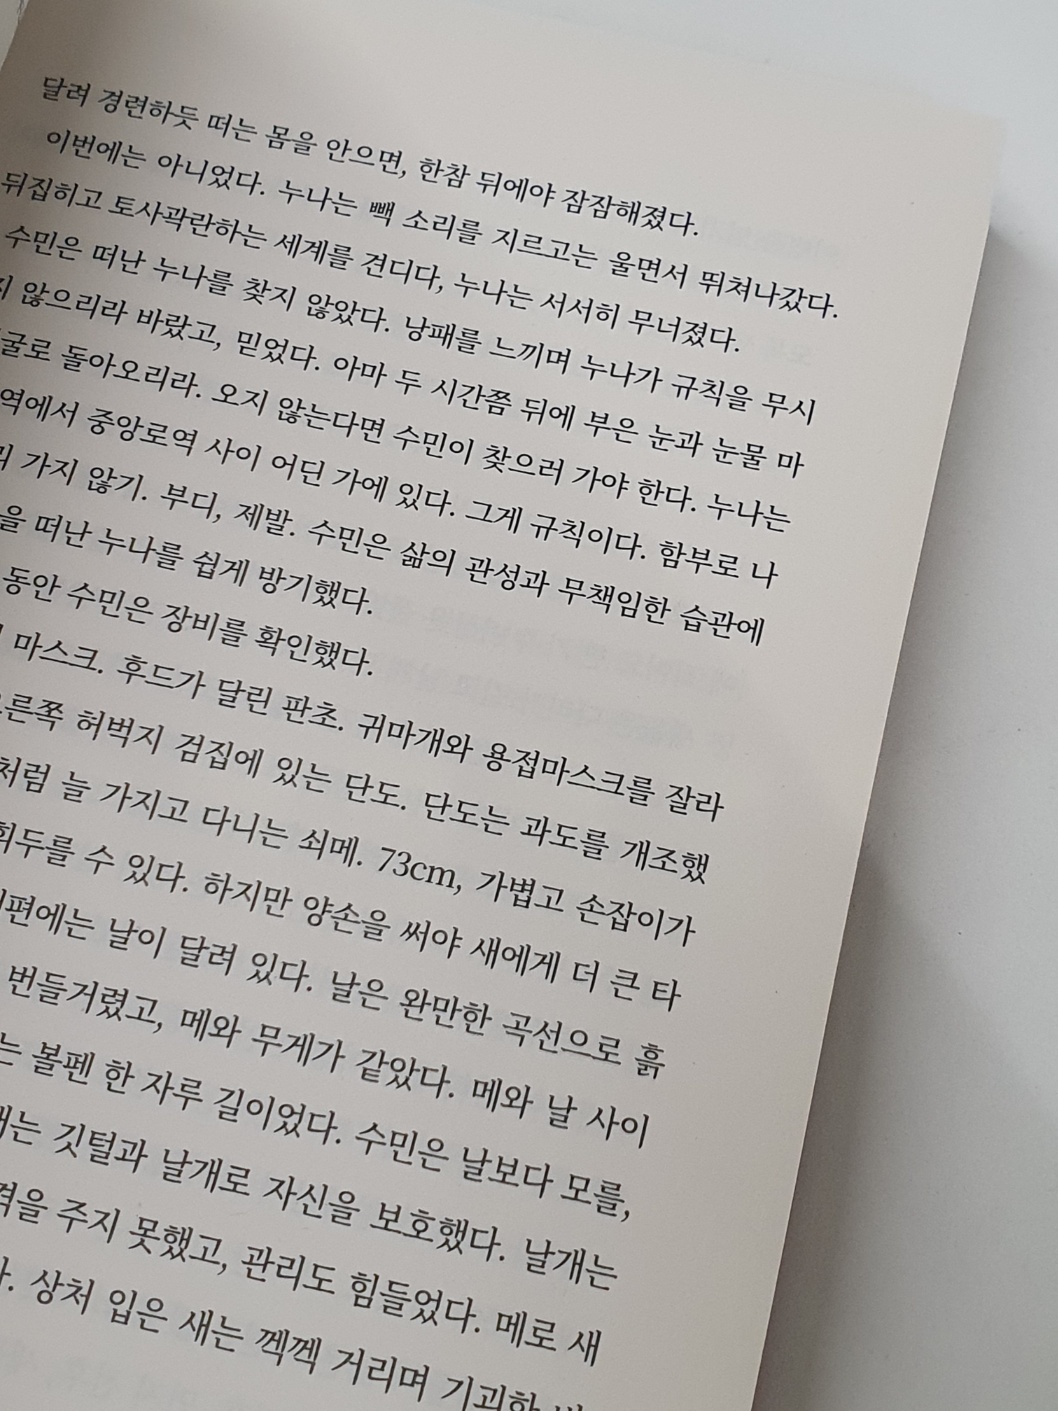 달려 경련하듯 떠는 몸을 안으면, 한참 뒤에야 잠잠해졌다.
이번에는 아니었다. 누나는 빽 소리를 지르고는 울면서 뛰쳐나갔다.
뒤집히고 토사곽란하는 세계를 견디다, 누나는 서서히 무너졌다.
수민은 떠난 누나를 찾지 않았다. 낭패를 느끼며 누나가 규칙을 무시
않으리라 바랐고, 믿었다. 아마 두 시간쯤 뒤에 부은 눈과 눈물 마
돌아오리라. 오지 않는다면 수민이 찾으러 가야 한다. 누나는
역에서 중앙로역 사이 어딘 가에 있다. 그게 규칙이다. 함부로 나
가지 않기. 부디, 제발. 수민은 삶의 관성과 무책임한 습관에
떠난 누나를 쉽게 방기했다.
동안 수민은 장비를 확인했다.
마스크. 후드가 달린 판초. 귀마개와 용접마스크를 잘라
허벅지 검집에 있는 단도. 단도는 과도를 개조했
처럼 늘 가지고 다니는 쇠메. 73cm, 가볍고 손잡이가
휘두를 수 있다. 하지만 양손을 써야 새에게 더 큰 타
날이 달려 있다. 날은 완만한 곡선으로 흙
번들거렸고, 메와 무게가 같았다. 메와 날 사이
는 볼펜 한 자루 길이었다. 수민은 날보다 모를,
깃털과 날개로 자신을 보호했다. 날개는
주지 못했고, 관리도 힘들었다. 메로 새
상처 입은 새는 껙껙 거리며